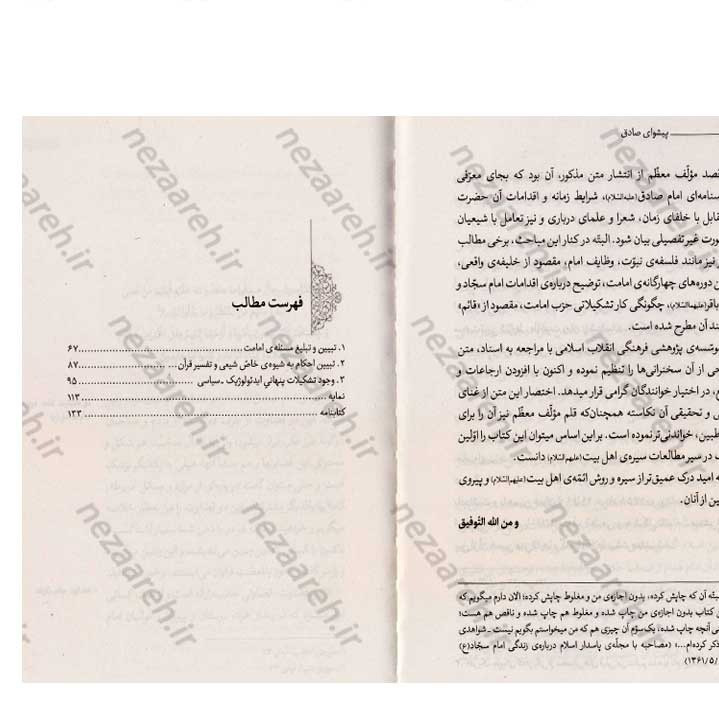 پیشوای صادق
قصد مؤلّف معظّم از انتشار متن مذکور، آن بود که بجای معرّفی
سنامه‌ای امام صادق(علیه‌السّلام)، شرایط زمانه و اقدامات آن حضرت
قابل با خلفای زمان، شعرا و علمای درباری و نیز تعامل با شیعیان
ورت غیر تفصیلی بیان شود. البتّه در کنار این مباحث، برخی مطالب
نیز مانند فلسفه‌ی نبوّت، وظایف امام، مقصود از خلیفه‌ی واقعی،
ن دوره‌های چهارگانه‌ی امامت، توضیح درباره‌ی اقدامات امام سجّاد و
باقر(علیهماالسّلام)، چگونگی کار تشکیلاتی حزب امامت، مقصود از «قائم»
ند آن مطرح شده است.
موسّسه‌ی پژوهشی فرهنگی انقلاب اسلامی با مراجعه به اسناد، متن
حی از آن سخنرانی‌ها را تنظیم نموده و اکنون با افزودن ارجاعات و
، در اختیار خوانندگان گرامی قرار میدهد. اختصار این متن از غنای
ی و تحقیقی آن نکاسته همچنان‌که قلم مؤلّف معظّم نیز آن را برای
طبین، خواندنی‌تر نموده است. بر این اساس میتوان این کتاب را اوّلین
ب در سیر مطالعات سیره‌ی اهل بیت(علیهم‌السّلام) دانست.
ه امید درک عمیق‌تر از سیره و روش ائمّه‌ی اهل بیت(علیهم‌السّلام) و پیروی
ین از آنان.
و من الله التّوفیق
بتّه آن که چاپش کرده، بدون اجازه‌ی من و مغلوط چاپش کرده؛ الان دارم میگویم که
ن کتاب بدون اجازه‌ی من چاپ شده و مغلوط هم چاپ شده و ناقص هم هست؛
ی آنچه چاپ شده، یک سوّم آن چیزی هم که من میخواستم بگویم نیست ـ شواهدی
ذکر کرده‌ام...» (مصاحبه با مجلّه‌ی پاسدار اسلام درباره‌ی زندگی امام سجّاد(ع)
/۱۳۶۱/۵)
فهرست مطالب
۱. تبیین و تبلیغ مسئله‌ی امامت ........ ۶۷
۲. تبیین احکام به شیوه‌ی خاصّ شیعی و تفسیر قرآن ........ ۸۷
۳. وجود تشکیلات پنهانیِ ایدئولوژیک ـ سیاسی ........ ۹۵
نمایه ........ ۱۱۳
کتابنامه ........ ۱۳۳
nezaareh.ir
nezaareh.ir
nezaareh.ir
nezaareh.ir
nezaareh.ir
nezaareh.ir
nezaareh.ir
nezaareh.ir
nezaareh.ir
nezaareh.ir
nezaareh.ir
nezaareh.ir